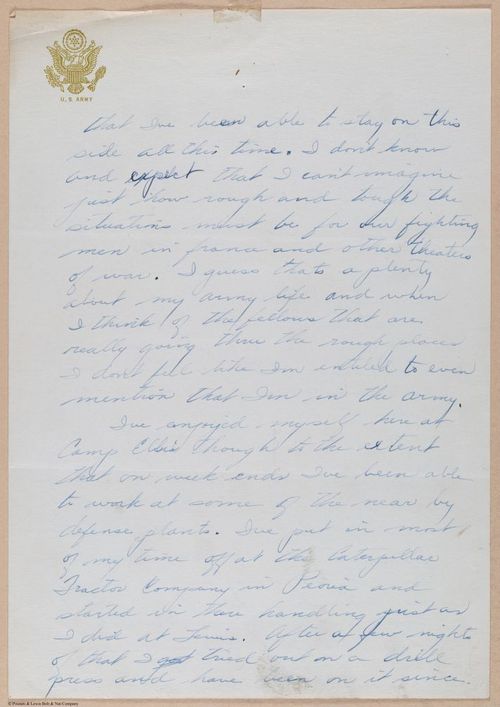 U.S. ARMY
that I've been able to stay on this
side all this time. I don't know
and expect that I can't imagine
just how rough and tough the
situations must be for our fighting
men in france and other theaters
of war. I guess thats a plenty
about my army life and when
I think of the fellows that are
really going thru the rough places
I dont feel like I'm entitled to even
mention that I'm in the army.
I've enjoyed myself here at
Camp Ellis though to the extent
that on week ends I've been able
to work at some of the near by
defense plants. I've put in most
of my time off at the Caterpillar
Tractor Company in Peoria and
started in there handling just as
I did at Lewis. After a few nights
of that I got tried out on a drill
press and have been on it since.
© Peanuts & Lewis Bolt & Nut Company